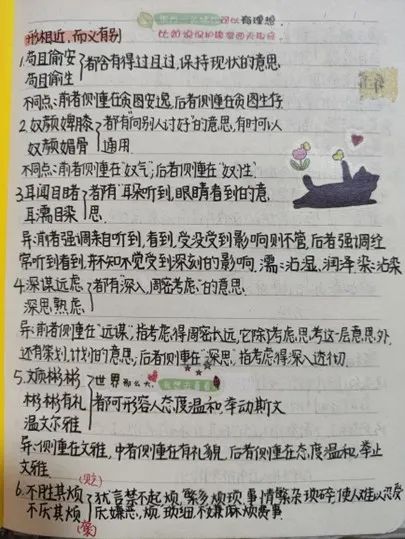 可以有理想
比如说保护
形相近，而义有别
1.苟且偷安
苟且偷生
都含有得过且过，保持现状的意思
不同点：前者侧重在贪图安逸，后者侧重在贪图生存
2.奴颜婢膝
奴颜媚骨
都有"向别人讨好"的意思，有时可以
通用
不同点：前者侧重在"奴气"；后者侧重在"奴性"
3.耳闻目睹
耳濡目染
都有"耳朵听到，眼睛看到的意
思
异：前者强调亲自听到，看到，受没受到影响则不管，后者强调经
常听到看到，并不知不觉受到深刻的影响，濡：沾湿、润泽染：沾染
4.深谋远虑
深思熟虑
都有"深入，周密考虑"的意思
异：前者侧重在"远谋"，指考虑得周密长远，它除了考虑思考这一层意思外，
还有策划，计划的意思，后者侧重在"深思"，指考虑得深入透彻
5.文质彬彬
彬彬有礼
温文尔雅
世界那么大
我想去看看
都可形容人态度温和，举动斯文
异：侧重在文雅，中者侧重在有礼貌，后者侧重在态度温和，举止
文雅
6.不胜其烦（贬）
不厌其烦（褒）
犹言禁不起烦，繁多烦琐，事情繁杂琐碎，使人难以忍受
厌嫌恶，烦琐细，不嫌麻烦费事